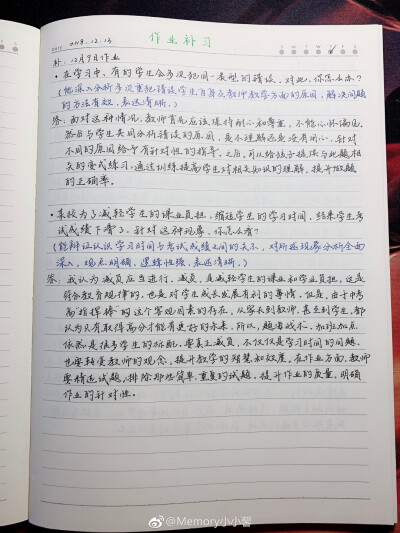 2018.12.13
作业补习
补:12月9日作业
•在学习中,有的学生会多次犯同一类型的错误,对此,你怎么办?
(能深入分析多次重犯错误学生自身及教师教学方面的原因,解决问题
的方法有效,表达清晰。)
答:面对这种情况,教师首先应该保持耐心和尊重,不能心怀偏见。
然后与学生共同分析错误的原因,是不理解还是没有用心,针对
不同的原因给予有针对性的指导。之后,可以给孩子提供与此题相
关的变式练习,通过训练提高学生对相关知识的理解,提升做题
的正确率。
•某校为了减轻学生的课业负担,缩短学生的学习时间,结果学生考
试成绩下滑了。针对这种现象,你怎么看?
(能辩证认识学习时间与考试成绩之间的关系,对所述现象分析全面
深入,观点明确,逻辑性强,表达清晰。)
答:我认为减负应当进行,减负,是减轻学生的课业和学业负担,这是
符合教育规律的,也是对学生成长发展有利的事情。但是,由于中考
高考指挥棒的这个客观因素的存在,从家长到教师,甚至到学生,都
认为只有取得高分才能有更好的未来,所以,题海战术、加班加点
依然是很多学生的标配。要真正减负,不仅仅是学习时间的问题,
也要转变教师的观念,提升教学的智慧和效度,在作业方面,教师
要精选试题,排除那些简单、重复的试题,提升作业的质量,明确
作业的针对性。
@Memory小小馨